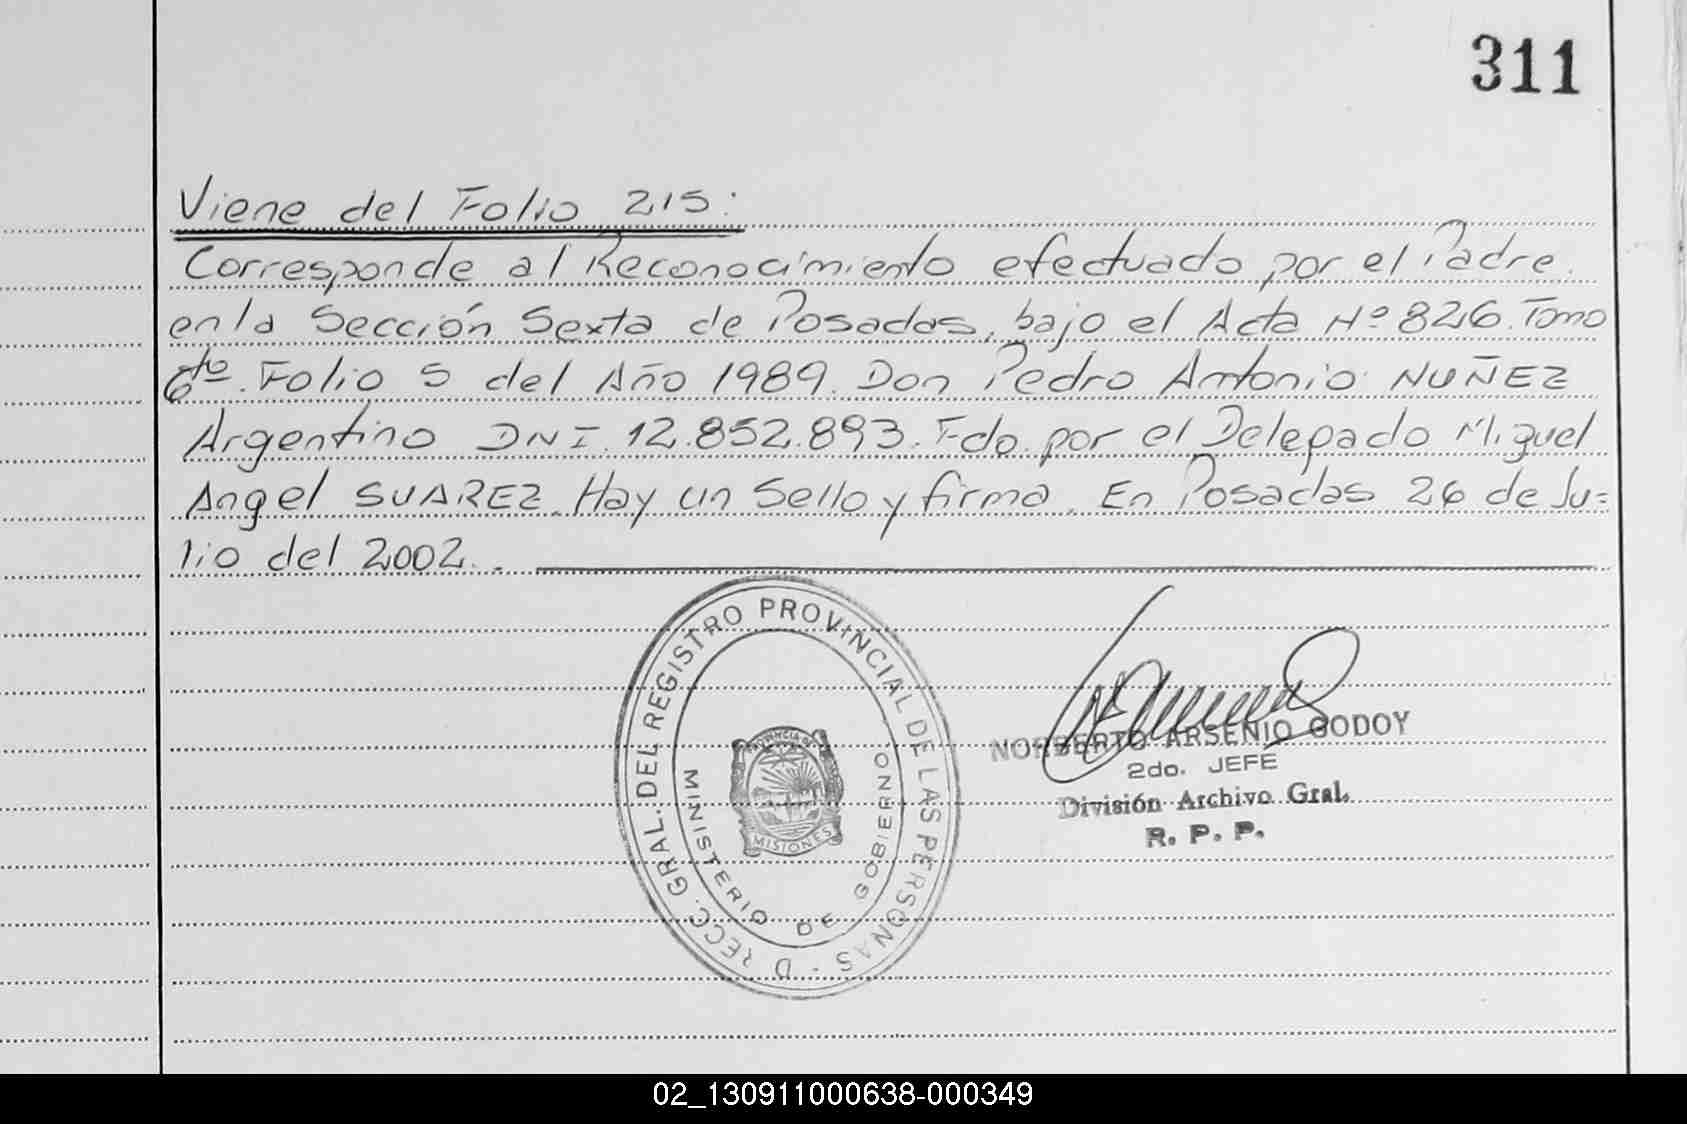 311
Viene del Folio 215:
Corresponde al Reconocimiento efectuado por el Padre
en la Sección Sexta de Posadas, bajo el Acta Nº 826. Tomo
6to. Folio 5 del Año 1989. Don Pedro Antonio NUÑEZ
Argentino DNI. 12.852.893. Fdo. por el Delegado Miguel
Angel SUAREZ. Hay un Sello y firma. En Posadas 26 de Ju=
lio del 2002. .
DIRECC. GRAL. DEL REGISTRO PROVINCIAL DE LAS PERSONAS -
MINISTERIO DE GOBIERNO
PROVINCIA DE
MISIONES
NORBERTO ARSENIO GODOY
2do. JEFE
División Archivo Gral.
R. P. P.
02_130911000638-000349